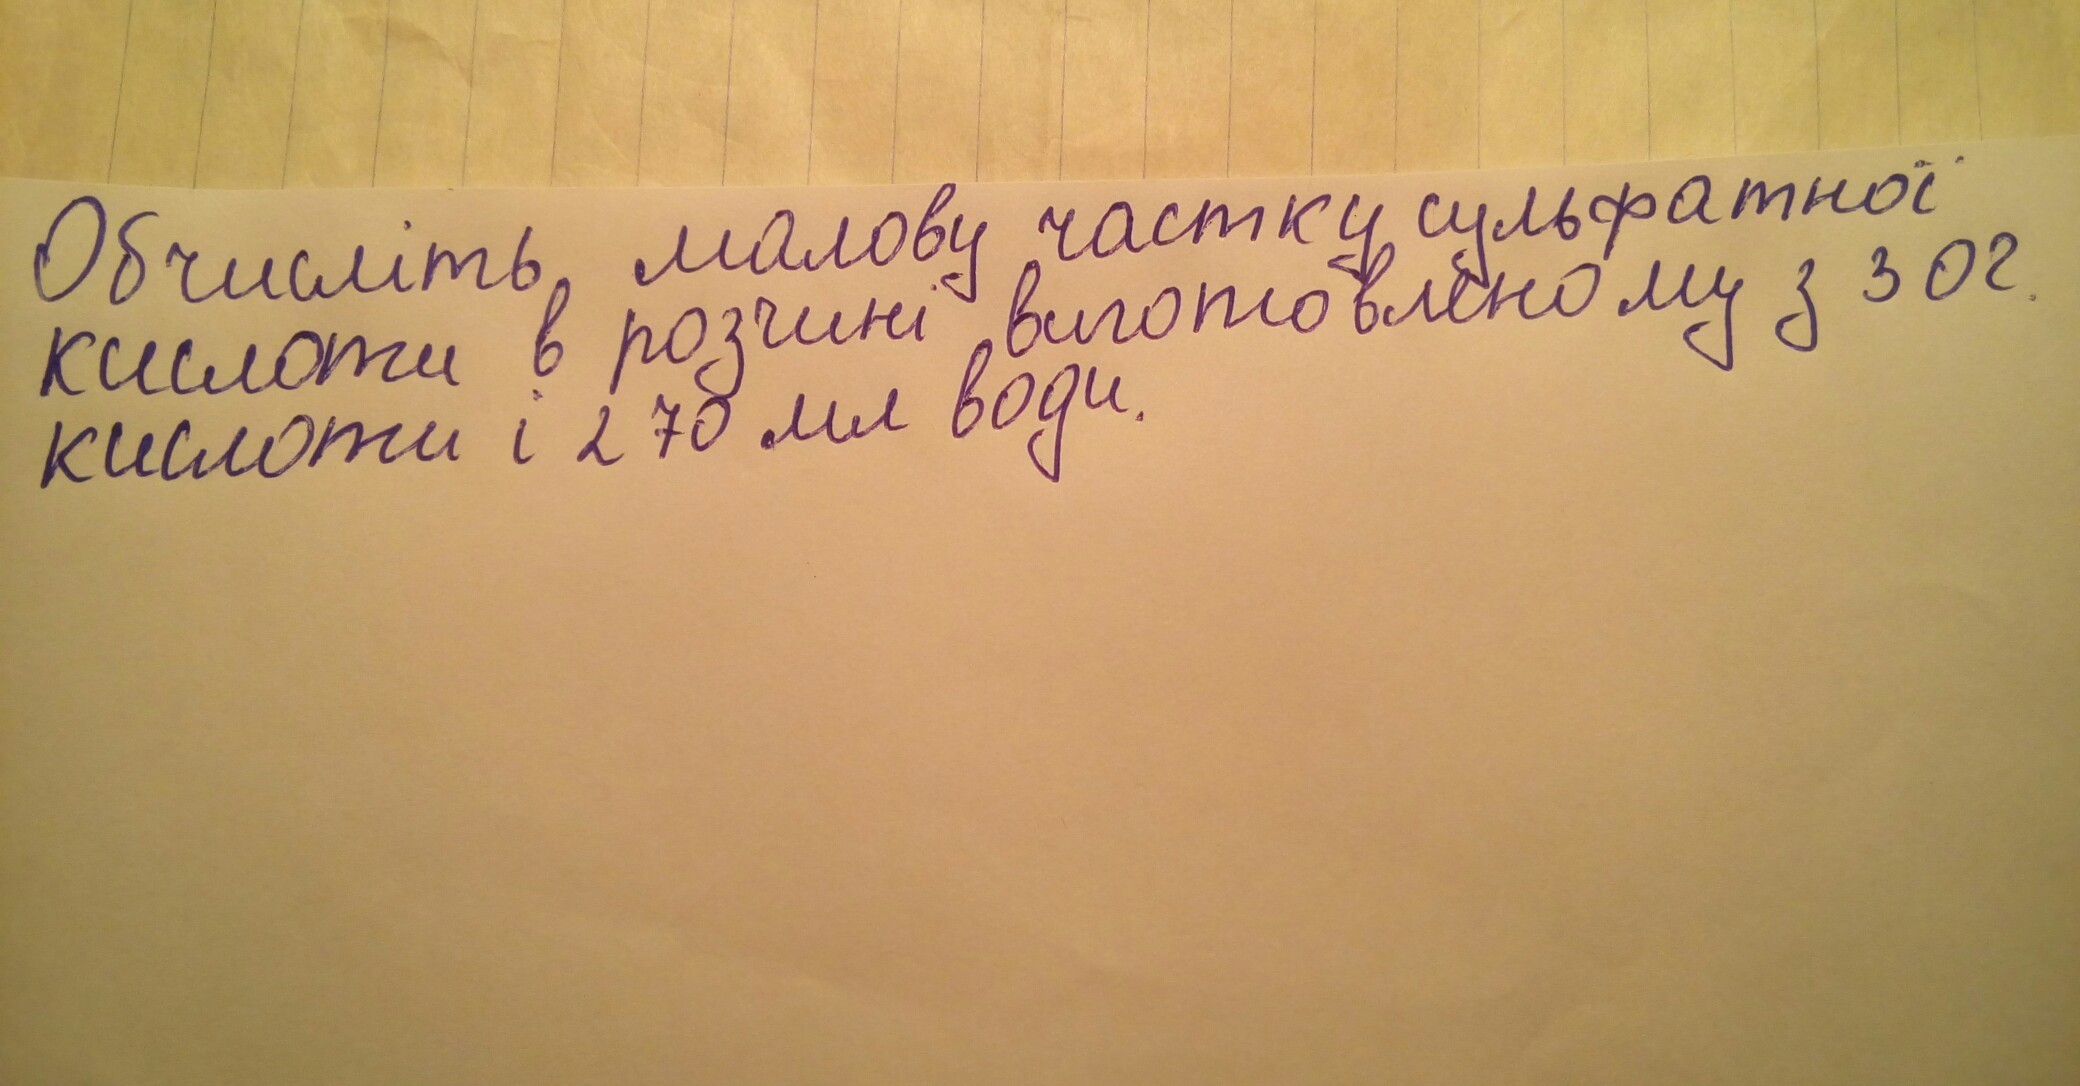 Обчисліть малову частку сульфатної
кислоти в розчині виготовленому з 30г.
кислоти і 270 мл води.